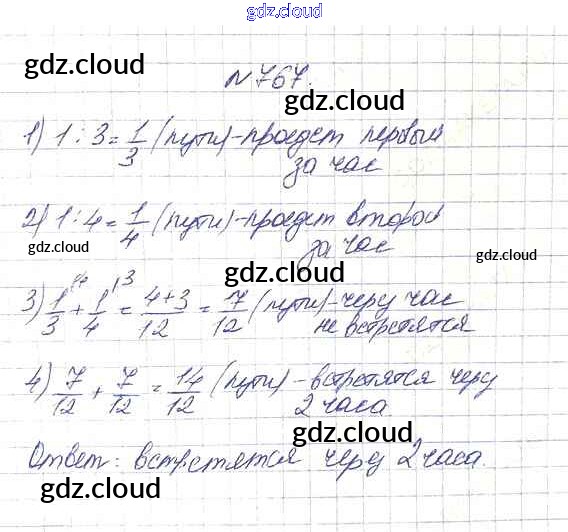 gdz.cloud
gdz.cloud
gdz.cloud
№767.
1) 1 : 3 = 1/3 (пути) - проедет первый
за час
gdz.cloud
gdz.cloud
2) 1 : 4 = 1/4 (пути) - проедет второй
за час
gdz.cloud
gdz.cloud
gdz.cloud
3) 1/3 ⁴ + 1/4 ³ = 4+3/12 = 7/12 (пути) - через час
не встретятся
gdz.cloud
gdz.cloud
4) 7/12 + 7/12 = 14/12 (пути) - встретятся через
2 часа.
gdz.cloud
gdz.cloud
Ответ: встретятся через 2 часа.
gdz.cloud
gdz.cloud